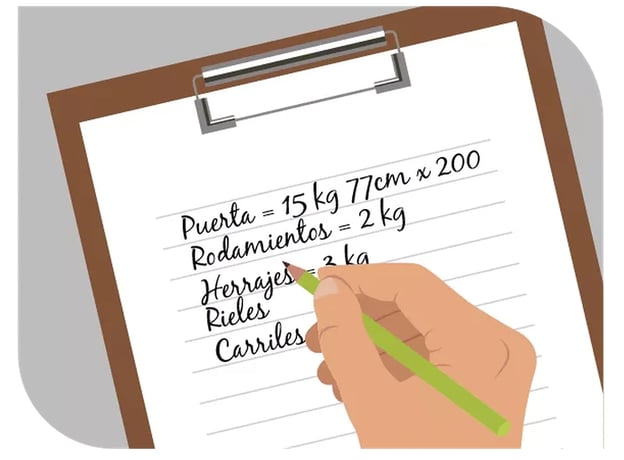 Puerta = 15 kg 77cm x 200
Rodamientos = 2 kg
Herrajes = 3 kg
Rieles
Carriles